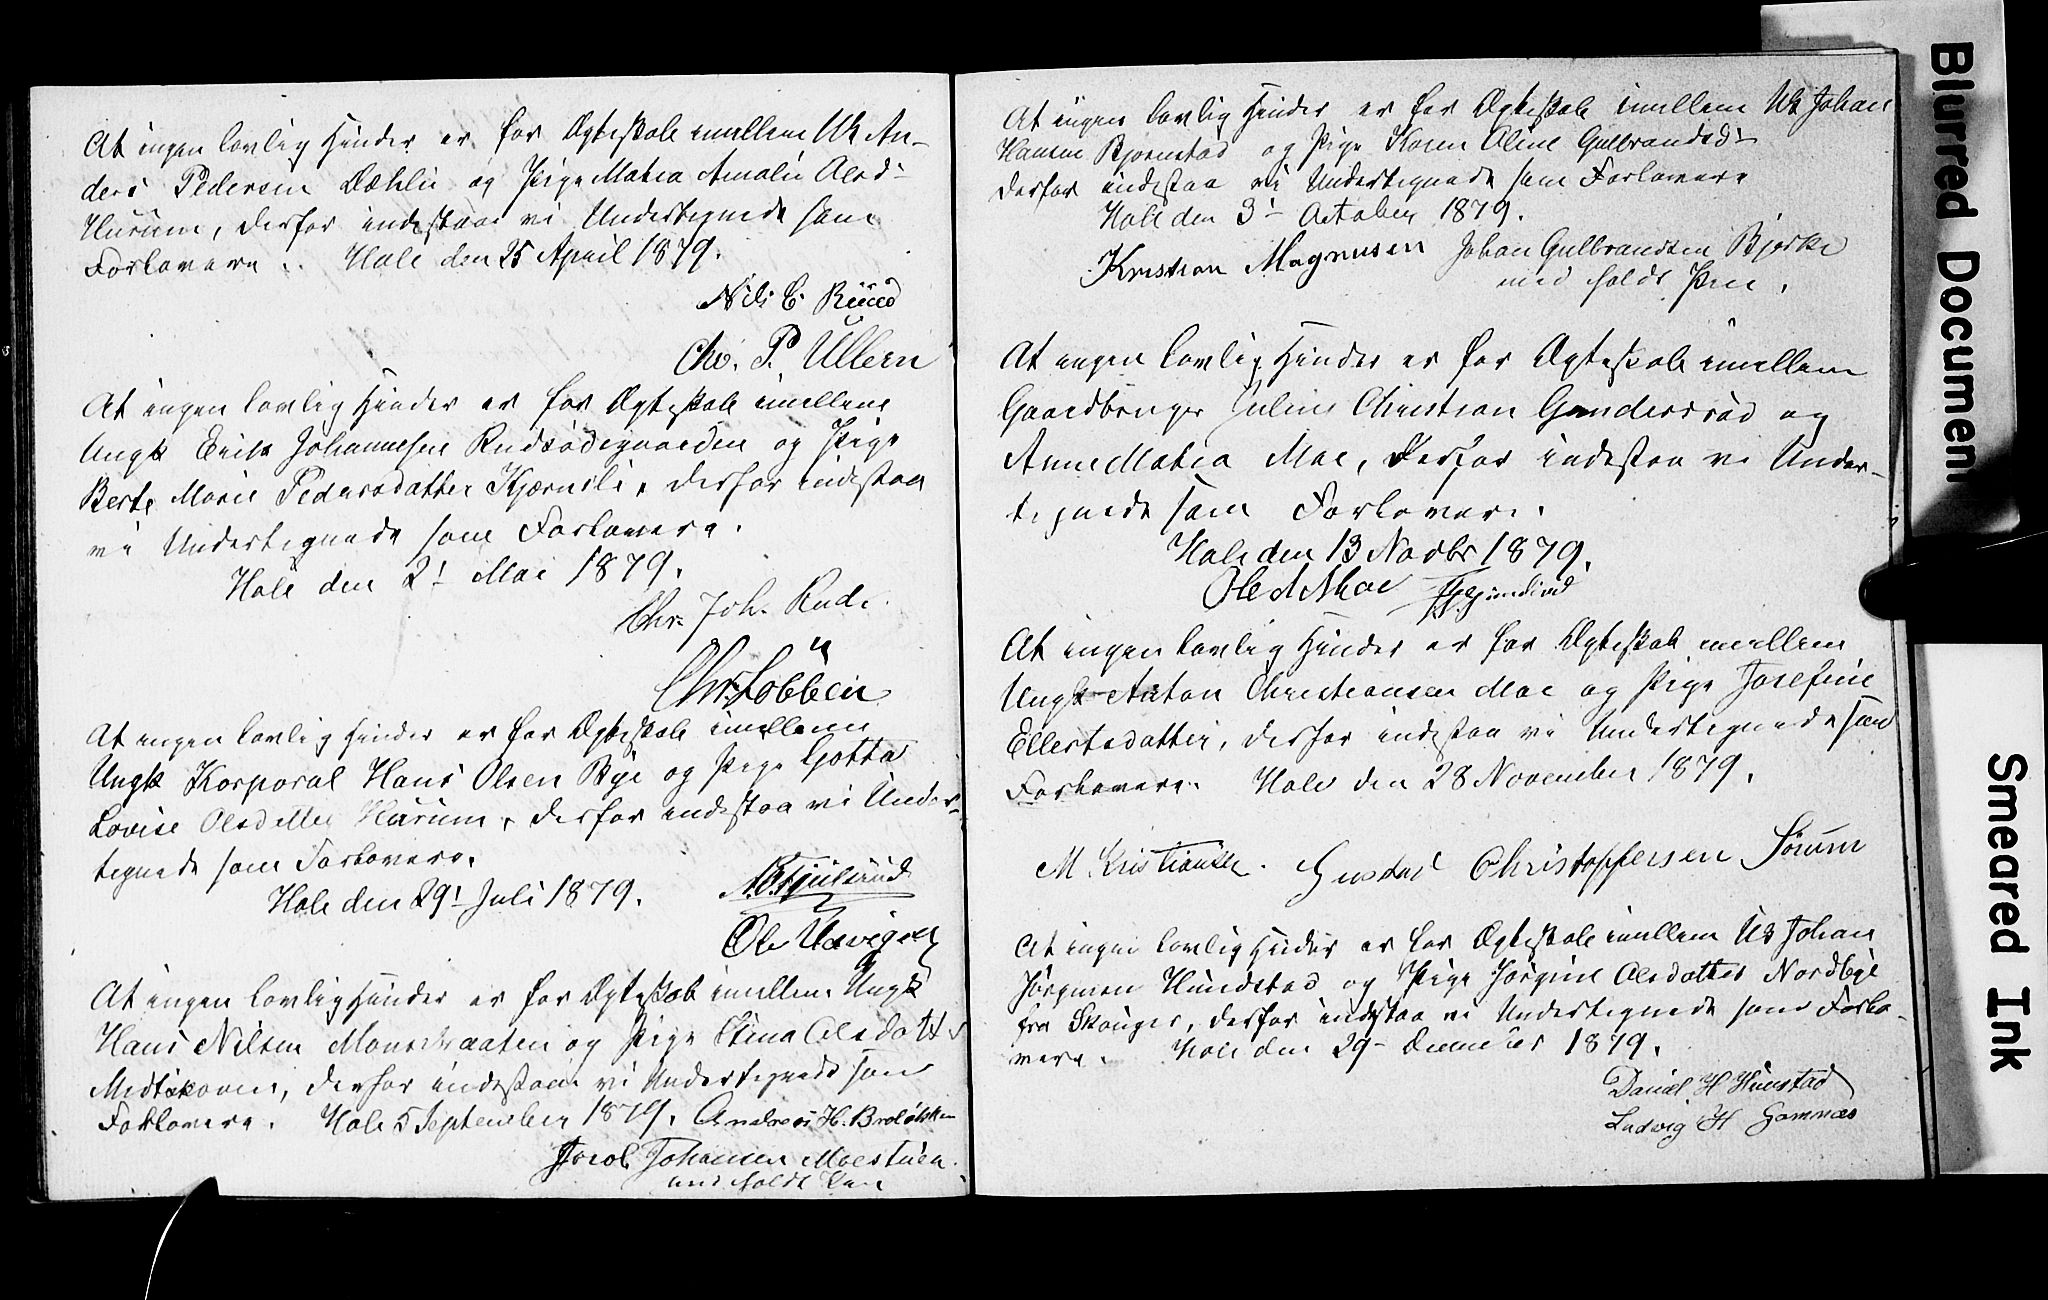 At ingen lovlig Hinder er for Ægteskab imellem Uk An-
ders Pedersen Dæhlie og Pige Matea Amalie Olsd-
Hurum, derfor indestaar vi Undertegnede som
Forlovere. Hole den 25 April 1879.
Nils C. Ruud
Chr. P. Ullern
At ingen lovlig Hinder er for Ægteskab imellem
Ungk Erik Johannesen Rudsødegaarden og Pige
Berte Marie Pedersdatter Kjærnsli, derfor indestaa
vi Undertegnede som Forlovere.
Hole den 2! Mai 1879.
Chr. Joh. Rude.
Chr. Lobben
At ingen lovlig Hinder er for Ægteskab imellem
Ungk Korporal Hans Olsen Bye og Pige Gotta
Lovise Olsdatter Hurum, derfor indestaa vi Under-
tegnede som Forlovere.
Hole den 29! Juli 1879.
Ole
At ingen lovlig Hinder er for Ægteskab imellem Ungk
Hans Nilsen og Pige Stina Olsdatter
Medtskoven, derfor indestaar vi Undertegnede som
Forlovere. Hole 5 September 1879. Andreas H. Broløkken
Jacob Johansen Moestuen.
med holdt Pen
At ingen lovlig Hinder er for Ægteskab imellem Uk Johan
Hansen Bjørnstad og Pige Karen Oline Gulbrandsd-
derfor indestaa vi Undertegnede som Forlovere
Hole den 3- October 1879.
Kristian Magnusen Johan Gulbrandsen Bjørke
med holdt Pen.
At ingen lovlig Hinder er for Ægteskab imellem
Gaardbruger Julius Christian Gundersrud og
Anne Matea Moe, derfor indestaa vi Under-
tegnede som Forlovere.
Hole den 13 Novbr 1879.
Ole A Moe
At ingen lovlig Hinder er for Ægteskab imellem
Ungk Anton Christiansen Moe og Pige Josefine
Ellertsdatter, derfor indestaa vi Undertegnede som
Forlovere. Hole den 28 November 1879.
M. Kristiansen. Gustav Christoffersen Sørum
At ingen lovlig Hinder er for Ægteskab imellem Uk Johan
Jørgensen Hundstad og Pige Jørgine Olsdatter Nordbye
fra Skouger, derfor indestaa vi Undertegnede som Forlo-
vere. Hole den 29- December 1879.
Daniel H Hunstad
Ludvig H Gomnæs
Blurred Document
Smeared Ink